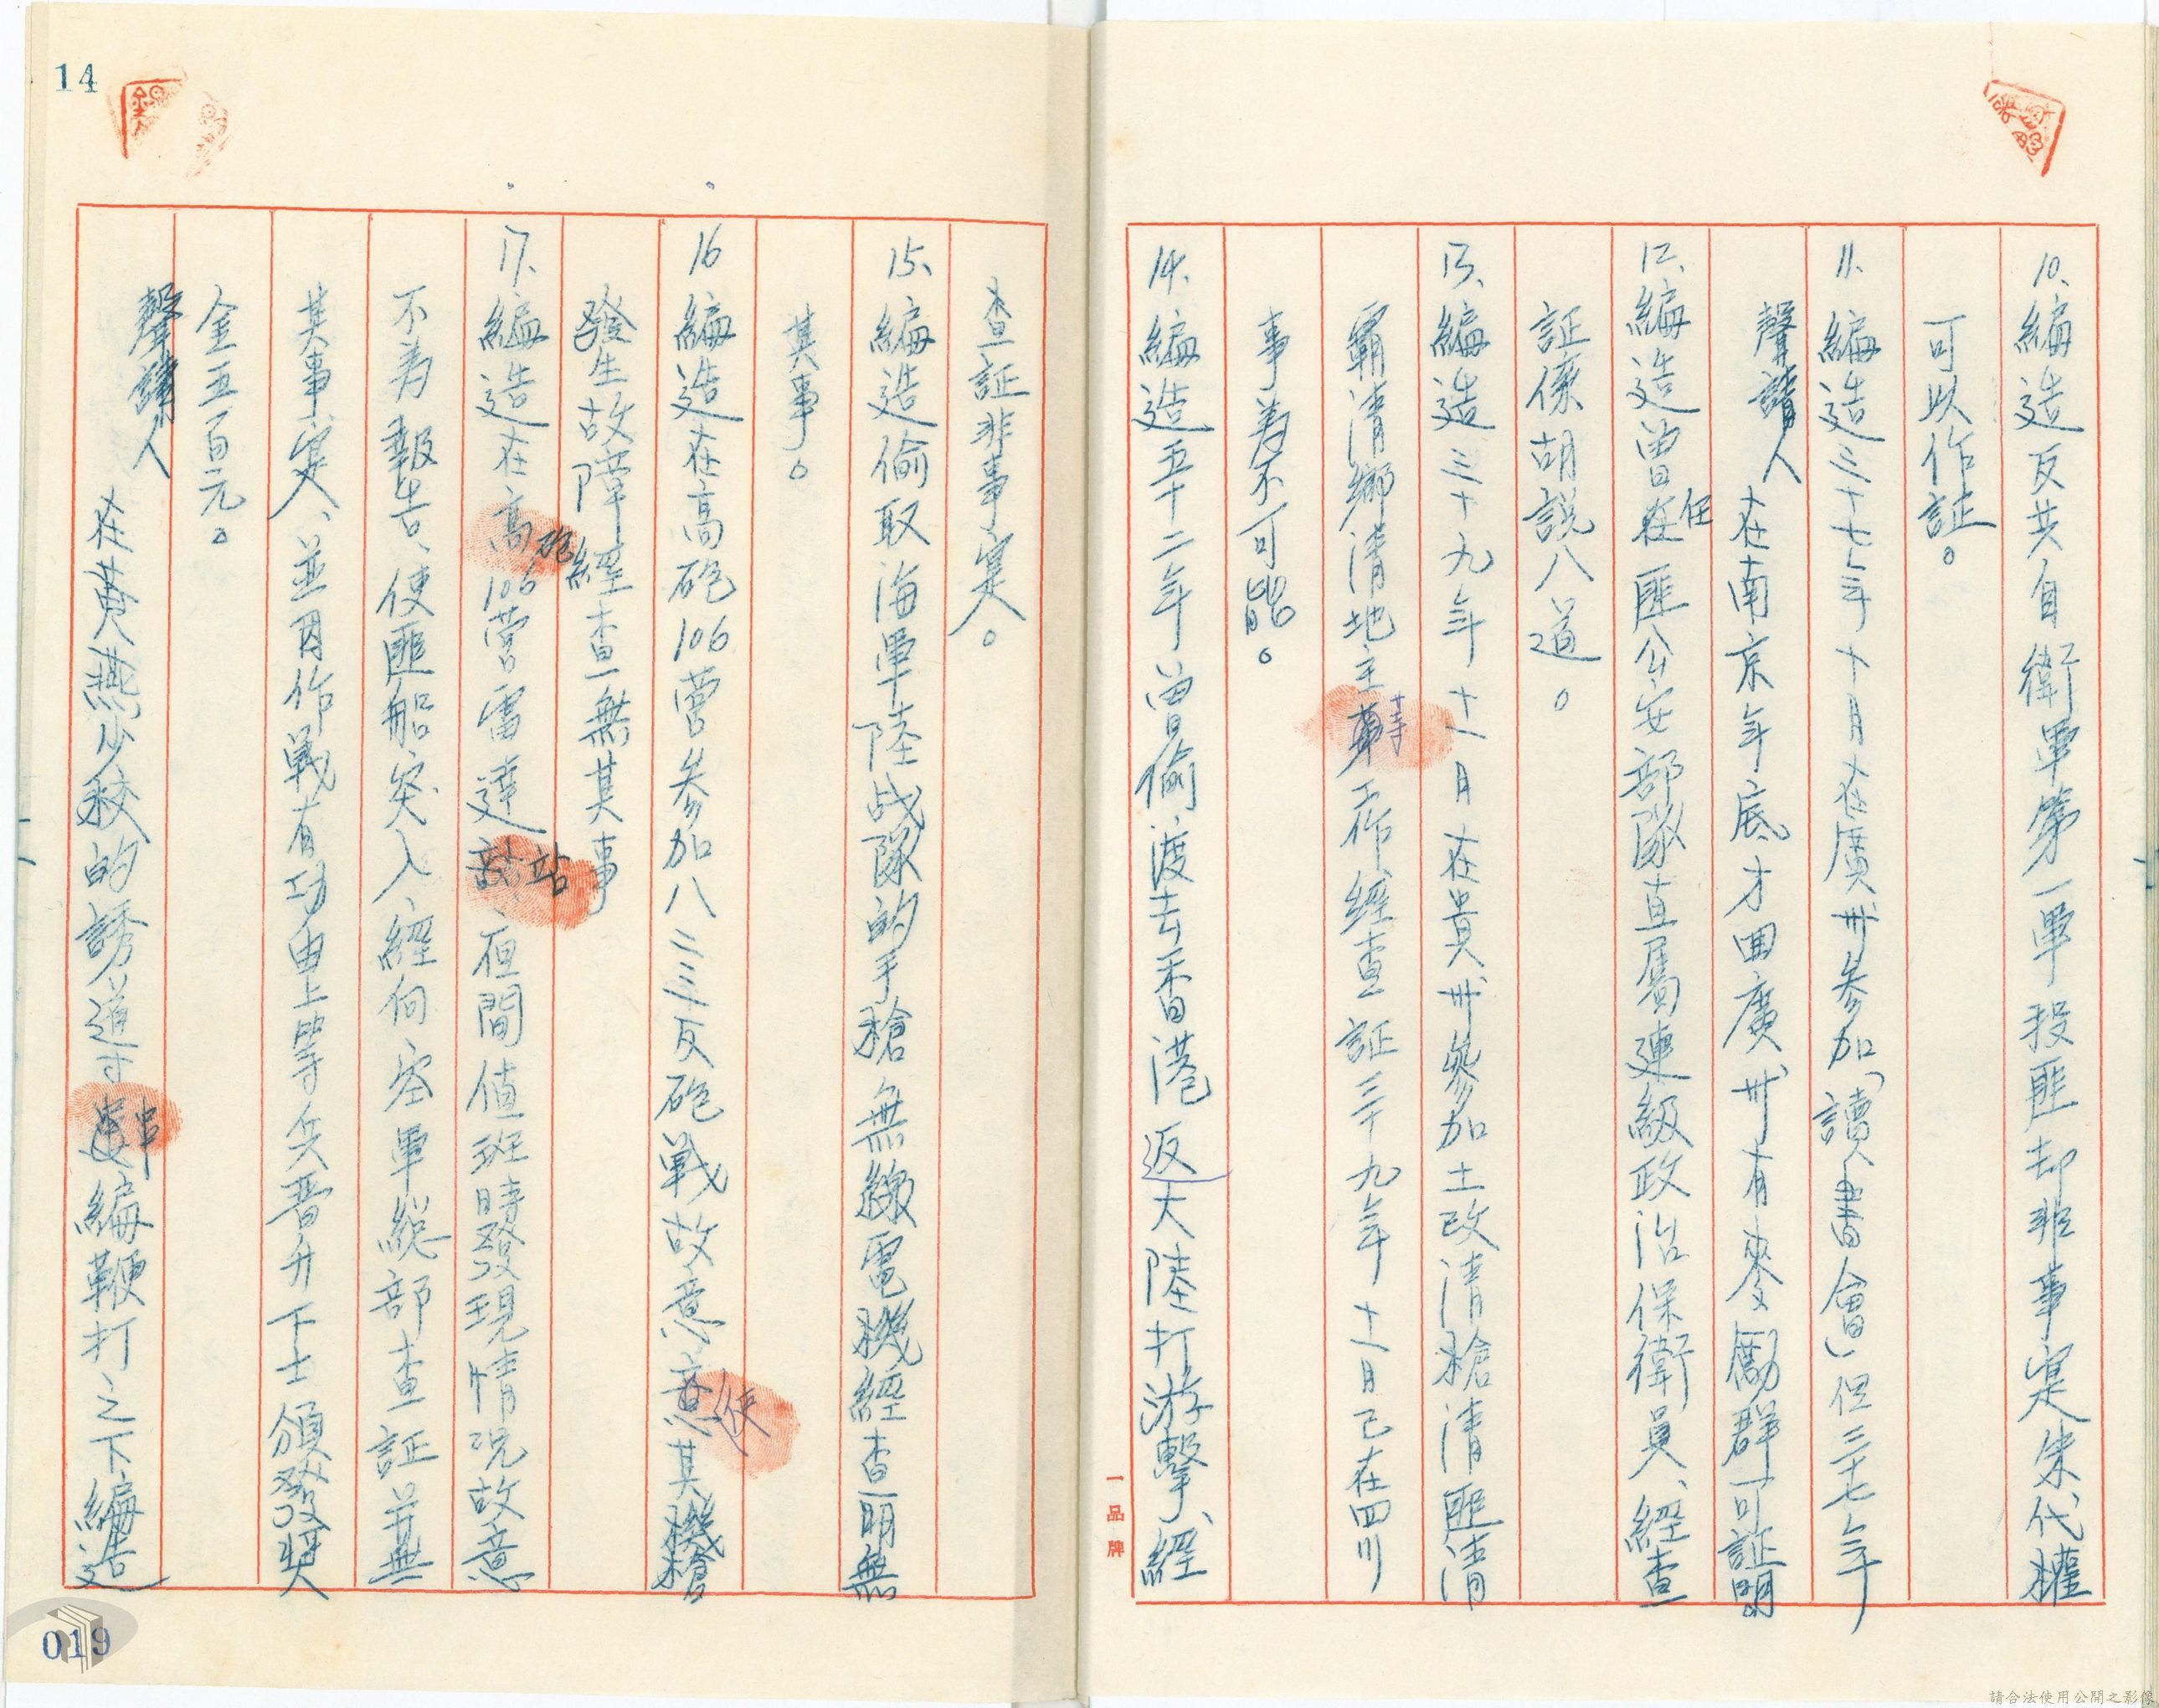 10、編造反共自衛軍第一軍投匪却非事寔朱代權
可以作証。
11、編造三十七年十月在廣州參加「讀書會」但三十七年
聲請人在南京年底才回廣州有麥勵群可証明。
12、編造曾任匪公安部隊直屬連級政治保衛員、經查
証係胡說八道。
13、編造三十九年十一月在貴州參加土改清槍清匪清
霸清鄉清地主等工作經查証三十九年十一月已在四川
事為不可能。
14、編造五十二年曾偷渡去香港返大陸打游擊、經
查証非事寔。
15、編造偷取海軍陸战隊的手槍無線電機經查明無
其事。
16編造在高砲106營參加八二三反砲戰故意使其機槍
發生故障經查無其事
17、編造在高砲106營雷達站、夜間值班時發現情況故意
不為報告、使匪船突入、經向空軍總部查証並無
其事寔、並因作戰有功由上等兵晋升下士頒發獎
金五百元。
聲請人在黃燕少校的誘導串編鞭打之下編造
14
019
一品牌
請合法使用公開之影像